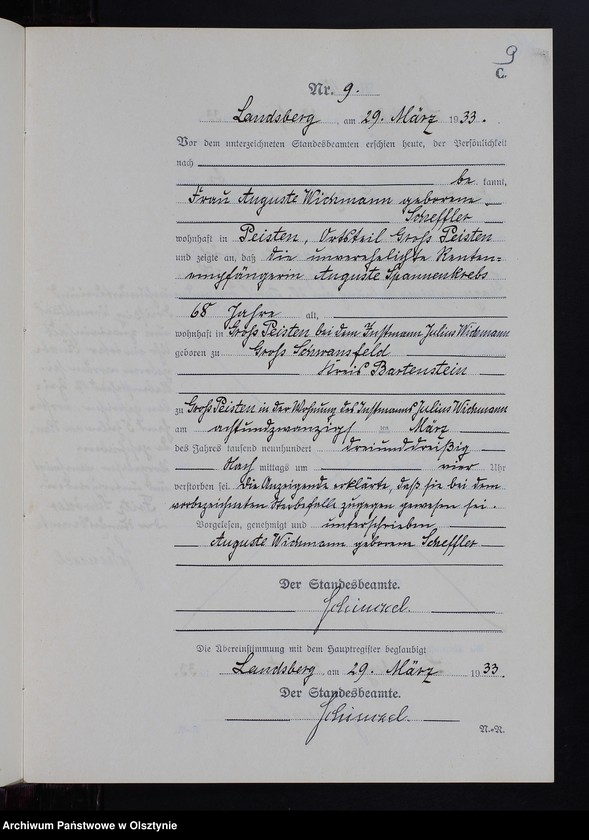 9
C.
Nr. 9.
Landsberg, am 29. März 1933.
Vor dem unterzeichneten Standesbeamten erschien heute, der Persönlichkeit
nach
be kannt,
Frau Auguste Wichmann geborene
Scheffler
wohnhaft in Peisten, Ortsteil Groß Peisten
und zeigte an, daß die unverehelichte Renten=
empfängerin Auguste Spannenkrebs
68 Jahre alt,
wohnhaft in Groß Peisten bei dem Instmann Julius Wichmann
geboren zu Groß Schwansfeld
Kreis Bartenstein
zu Groß Peisten in der Wohnung des Instmanns Julius Wichmann
am achtundzwanzigst en März
des Jahres tausend neunhundert dreiunddreißig
Nach mittags um vier Uhr
verstorben sei. Die Anzeigende erklärte, daß sie bei dem
vorbezeichneten Sterbefalle zugegen gewesen sei.
Vorgelesen, genehmigt und unterschrieben
Auguste Wichmann geborene Scheffler
Der Standesbeamte.
Schinckel.
Die Übereinstimmung mit dem Hauptregister beglaubigt
Landsberg, am 29. März 1933.
Der Standesbeamte.
Schinckel.
N.-R.
Archiwum Państwowe w Olsztynie